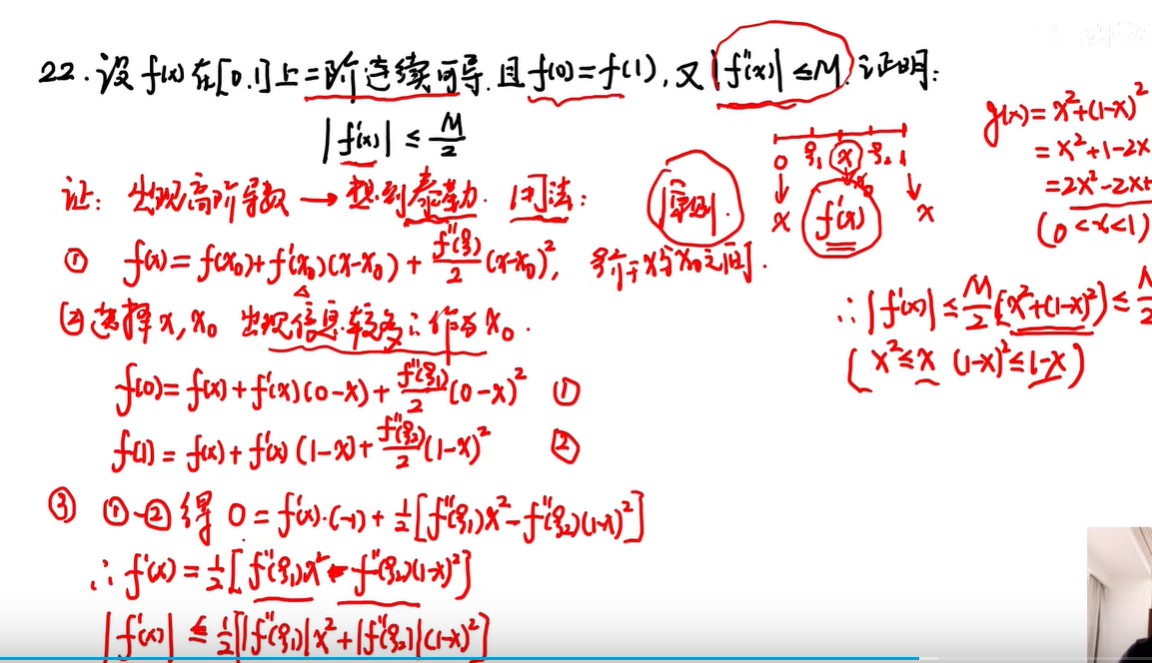 22.设f(x)在[0,1]上二阶连续可导.且f(0)=f(1),又|f''(x)|≤M.证明:
|f'(x)|≤M/2
证: 出现高阶导数→想到泰勒. 用法:
① f(x)=f(x₀)+f'(x₀)(x-x₀)+f''(ξ)/2(x-x₀)², ξ介于x与x₀之间.
②选择x,x₀ 出现信息较多∴作为x₀.
f(0)=f(x)+f'(x)(0-x)+f''(ξ₁)/2(0-x)² ①
f(1)=f(x)+f'(x)(1-x)+f''(ξ₂)/2(1-x)² ②
③ ①-②得 0=f'(x)·(-1)+1/2[f''(ξ₁)x²-f''(ξ₂)(1-x)²]
∴f'(x)=1/2[f''(ξ₁)x²-f''(ξ₂)(1-x)²]
|f'(x)|≤1/2[|f''(ξ₁)|x²+|f''(ξ₂)|(1-x)²]
0 ξ₁ x ξ₂ 1
x f'(x) x
g(x)=x²+(1-x)²
=x²+1-2x
=2x²-2x+
(0<x<1)
∴|f'(x)|≤M/2[x²+(1-x)²]≤M/2
(x²≤x (1-x)²≤1-x)